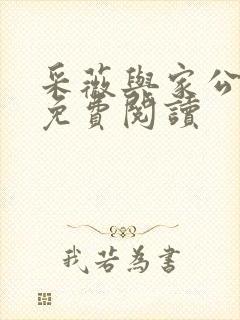 采薇與家公
免費閱讀
我若為書